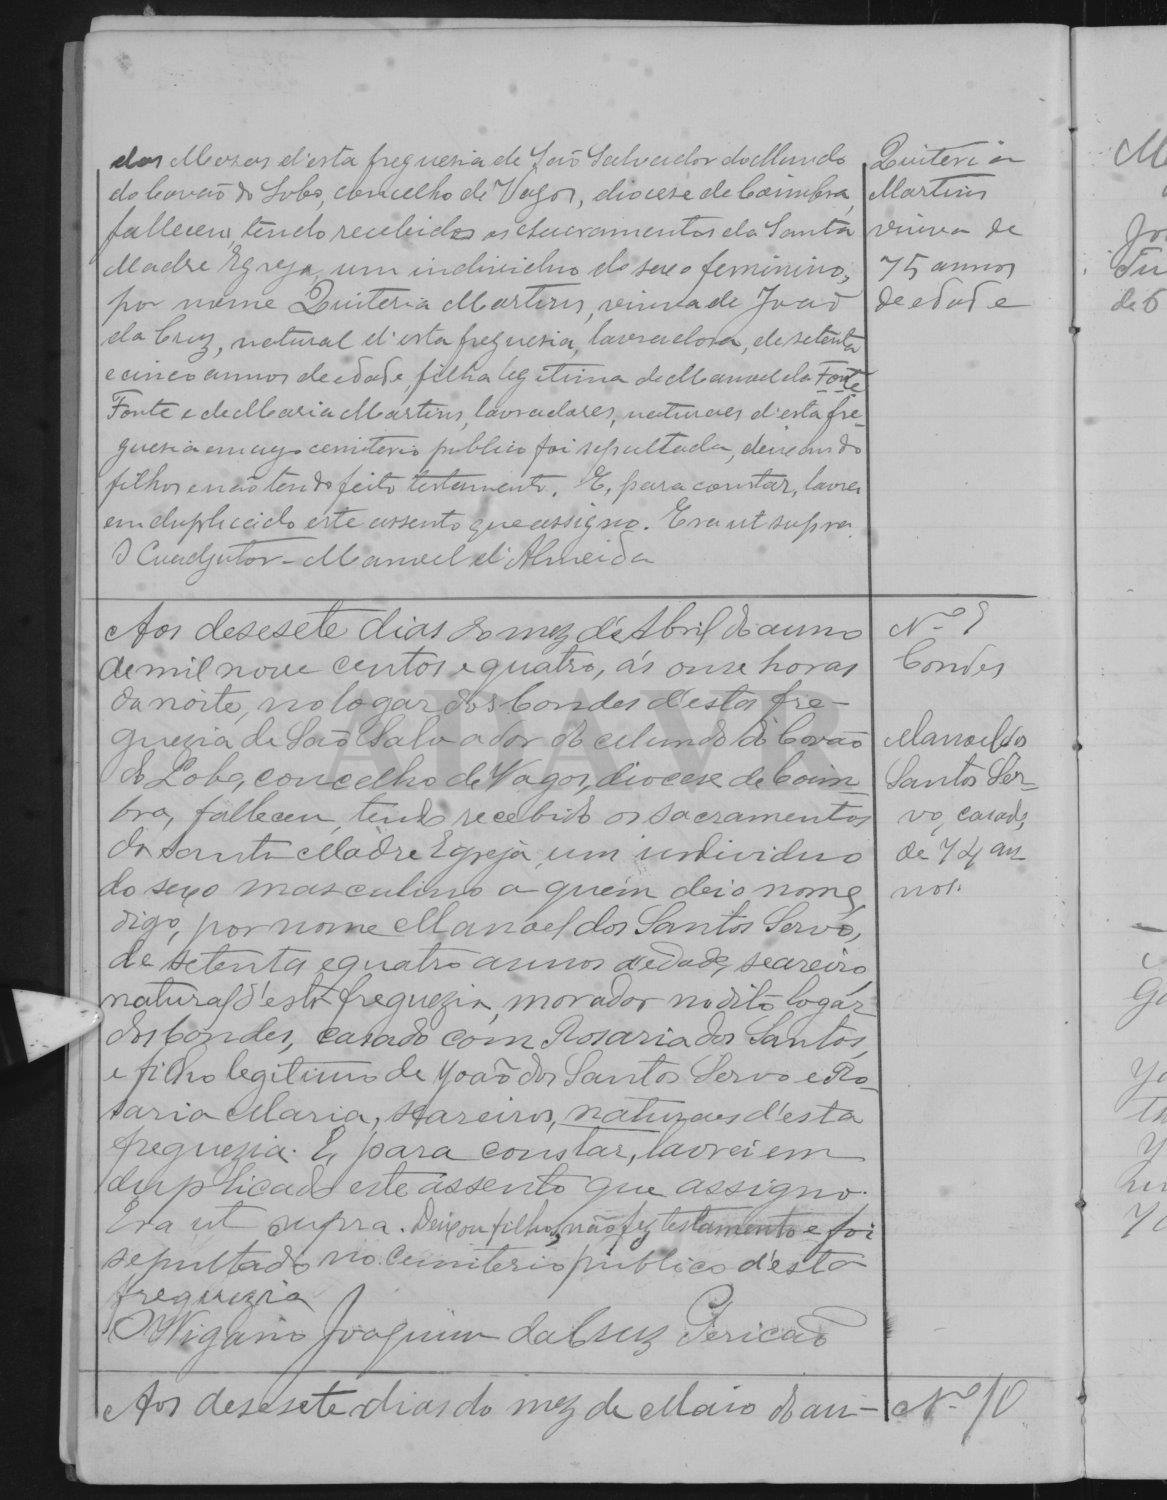 dos Mozos d'esta freguesia de São Salvador do Mundo
do Covão do Lobo, concelho de Vagos, diocese de Coimbra,
falleceu, tendo recebidos os sacramentos da Santa
Madre Egreja, um individuo do sexo feminino,
por nome Quiteria Martins, viuva de João
da Cruz, natural d'esta freguesia, lavradora, de setenta
e cinco annos de edade, filha legitima de Manoel da Fonte
Fonte e de Maria Martins, lavradores, naturaes d'esta fre-
guesia em cujo cemiterio publico foi sepultada, deixando
filhos e não tendo feito testamento. E, para constar, lavrei
em duplicado este assento que assigno. Era ut supra.
O Coadjutor - Manoel d'Almeida
Quiteria
Martins
viuva de
75 annos
de edade
Aos desesete dias do mez de Abril do anno
de mil nove centos e quatro, ás onse horas
da noite, no logar dos Condes d'esta fre-
guezia de São Salvador do Mundo do Covão
do Lobo, concelho de Vagos, diocese de Coim-
bra, falleceu, tendo recebido os sacramentos
da Santa Madre Egreja, um individuo
do sexo masculino a quem dei o nome,
digo, por nome Manoel dos Santos Servo,
de setenta e quatro annos d'edade, seareiro,
natural d'esta freguezia, morador no dito logar
dos Condes, casado com Rosaria dos Santos,
e filho legitimo de João dos Santos Servo e Ro-
saria Maria, seareiros, naturaes d'esta
freguezia. E, para constar, lavrei em
duplicado este assento que assigno.
Era ut supra. Deixou filhos, não fez testamento e foi
sepultado no cemiterio publico d'esta
freguezia
O Vigario Joaquim da Cruz Pericão
Nº 9
Condes
Manoel dos
Santos Ser-
vo, casado,
de 74 an-
nos.
Aos desesete dias do mez de Maio do an-
Nº 10
ADAVR